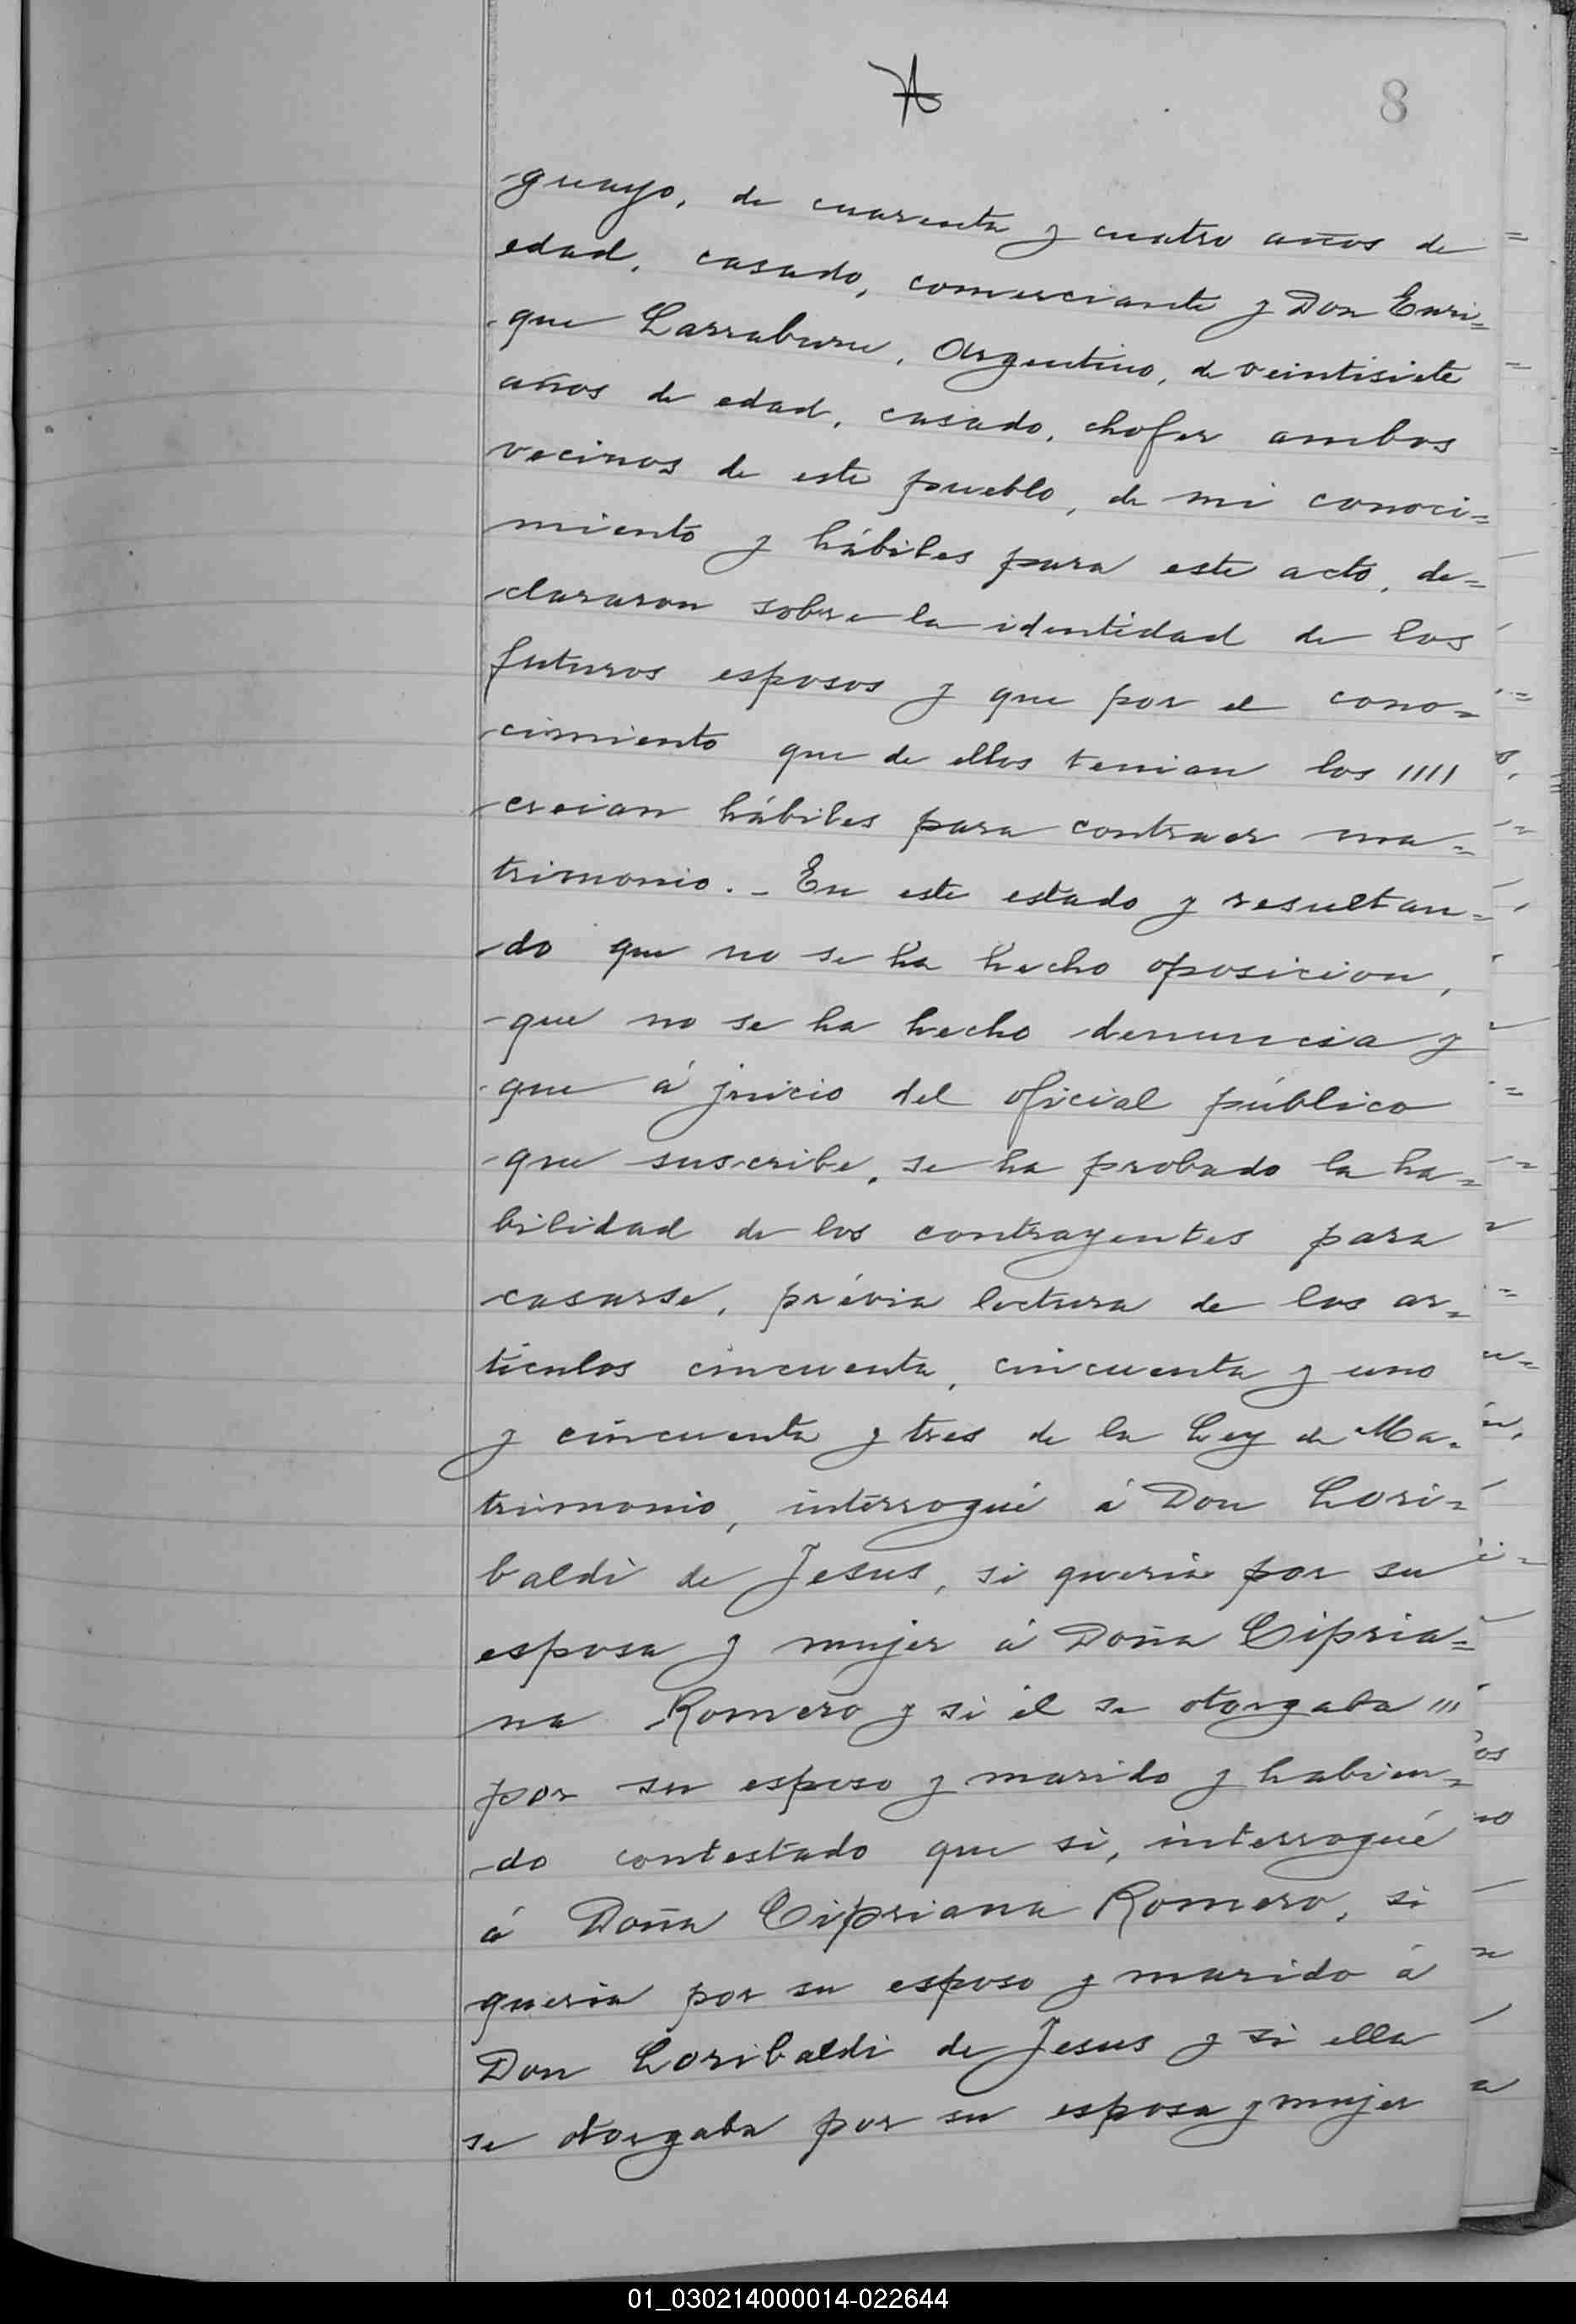 8
guayo, de cuarenta y cuatro años de
edad, casado, comerciante y Don Enri=
que Larraburu, Argentino, de veintisiete
años de edad, casado, chofer ambos
vecinos de este pueblo, de mi conoci=
miento y hábiles para este acto, de=
clararon sobre la identidad de los
futuros esposos y que por el cono=
cimiento que de ellos tenian los ////
creian hábiles para contraer ma=
trimonio.- En este estado y resultan=
do que no se ha hecho oposicion,
que no se ha hecho denuncia y
que á juicio del oficial público
que suscribe, se ha probado la ha=
bilidad de los contrayentes para
casarse, prévia lectura de los ar=
tículos cincuenta, cincuenta y uno
y cincuenta y tres de la Ley de Ma=
trimonio, interrogué á Don Lori=
baldi de Jesus, si queria por su
esposa y mujer á Doña Cipria=
na Romero y si él se otorgaba ///
por su esposo y marido y habien=
do contestado que si, interrogué
á Doña Cipriana Romero, si
queria por su esposo y marido á
Don Loribaldi de Jesus y si ella
se otorgaba por su esposa y mujer
01_030214000014-022644